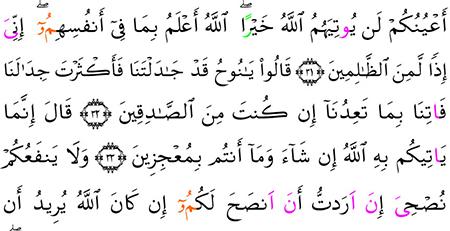 أَعْيُنُكُمْ لَن يُوتِيَهُمُ ٱللَّهُ خَيْرًاۖ ٱللَّهُ أَعْلَمُ بِمَا فِىٓ أَنفُسِهِمُۥٓۖ إِنِّىَ
إِذًا لَّمِنَ ٱلظَّٰلِمِينَ ۝٣١ قَالُوا۟ يَٰنُوحُ قَدْ جَٰدَلْتَنَا فَأَكْثَرْتَ جِدَٰلَنَا
فَاتِنَا بِمَا تَعِدُنَآ إِن كُنتَ مِنَ ٱلصَّٰدِقِينَ ۝٣٢ قَالَ إِنَّمَا
يَاتِيكُم بِهِ ٱللَّهُ إِن شَآءَ وَمَآ أَنتُم بِمُعْجِزِينَ ۝٣٣ وَلَا يَنفَعُكُمْ
نُصْحِىَ إِنَ اَرَدتُّ أَنَ اَنصَحَ لَكُمُۥٓ إِن كَانَ ٱللَّهُ يُرِيدُ أَن